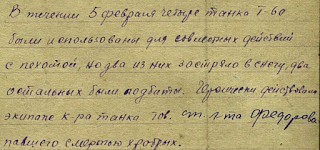 В течении 5 февраля четыре танка Т-60
были использованы для совместных действий
с пехотой, но два из них застряло в снегу, два
остальных были подбиты. Героически действовал
экипаж к-ра танка тов. ст. л-та Федорова
павшего смертью храбрых.